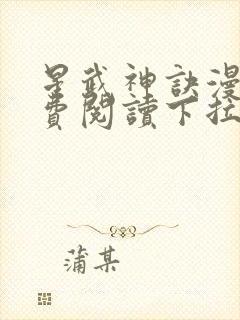 星武神訣漫
費閱讀下拉
蒲某